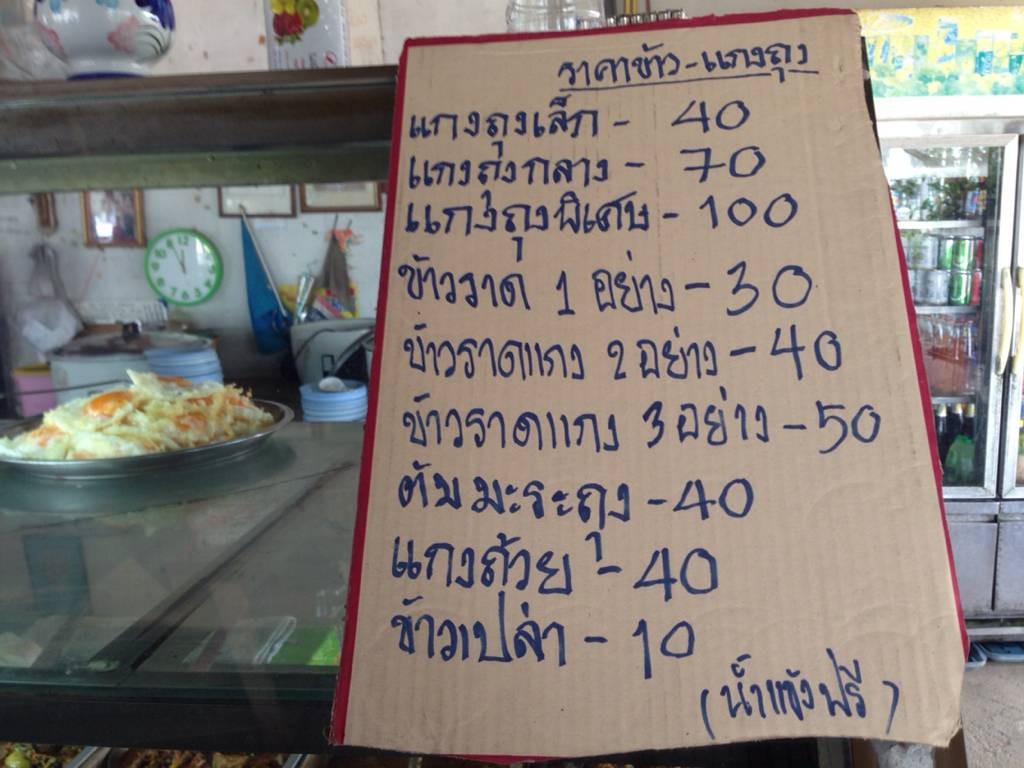 ราคาข้าว-แกงถุง
แกงถุงเล็ก - 40
แกงถุงกลาง - 70
แกงถุงพิเศษ - 100
ข้าวราด 1 อย่าง - 30
ข้าวราดแกง 2 อย่าง - 40
ข้าวราดแกง 3 อย่าง - 50
ต้มมะระถุง - 40
แกงถ้วย - 40
ข้าวเปล่า - 10
(น้ำแข็งฟรี)